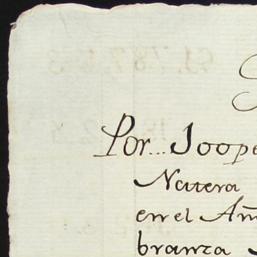 Por... Joope
Natera
en el Añ
branza